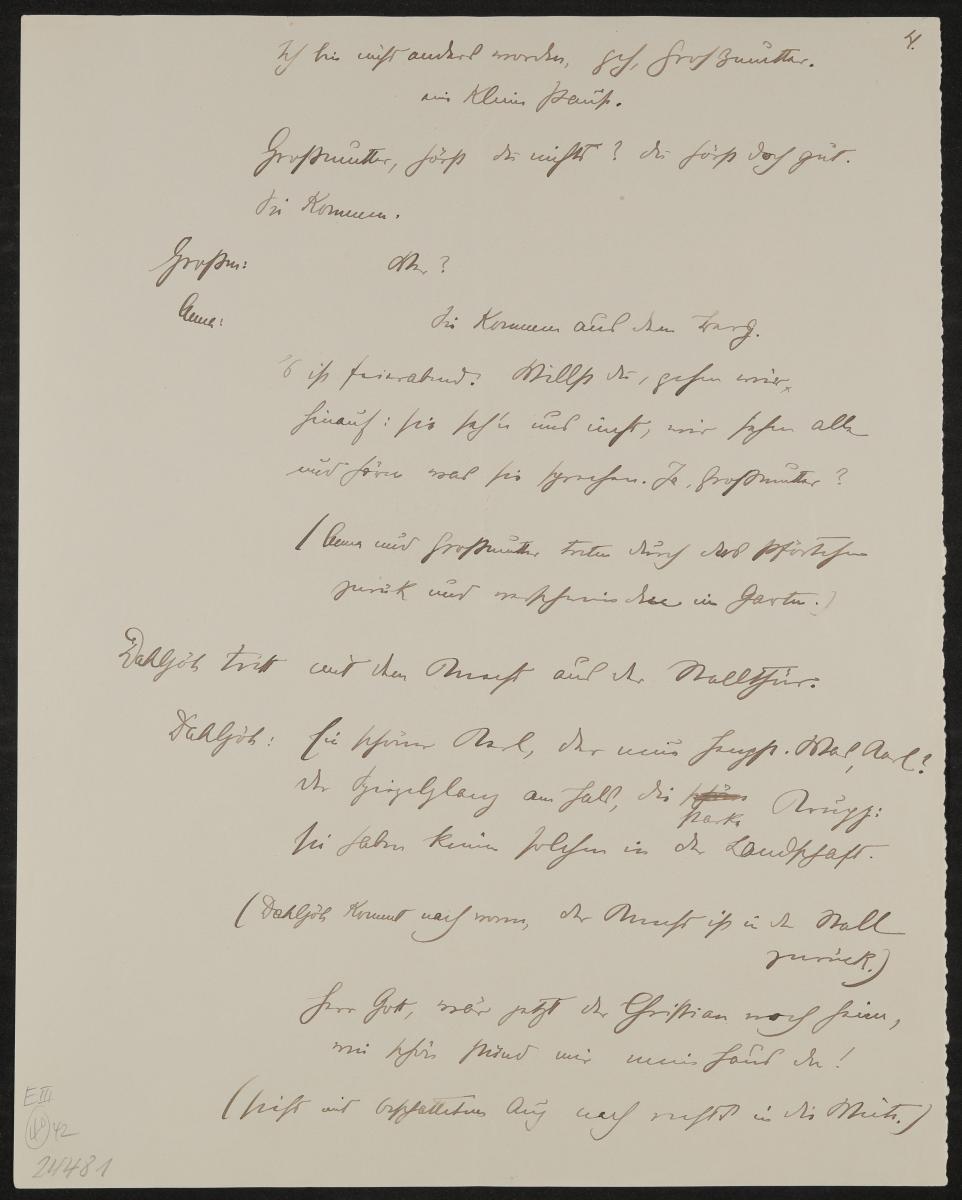 4.
Ich bin nicht anders worden, geh, Großmutter.
ein klein
Großmutter, hörst du nichts? du hörst doch gut.
Sie kommen.
Großm: Wer?
Anna: Sie kommen aus dem Berg.
's ist Feierabend. Willst du, gehen wir
hinauf: sie seh'n uns nicht, wir sehen alle
und hören was sie sprechen. Ja, Großmutter?
(Anna und Großmutter treten durch das Pförtchen
zurück und verschwinden im Garten.)
Dahljöh tritt mit dem Knecht aus der Stallthür.
Dahljöh: Ein schöner Kerl, der neue Hengst. Was, Karl?
der Spiegelglanz am Hals, die starke Krupp:
sie haben keinen solchen in der Landschaft.
(Dahljöh kommt nach vorn, der Knecht ist in den Stall
zurück.)
Herr Gott, wär jetzt der Christian noch heim,
wie schön stünd mir mein Haus da!
(sieht mit beschattetem Aug nach rechts in die Weite.)
E III
42
24481